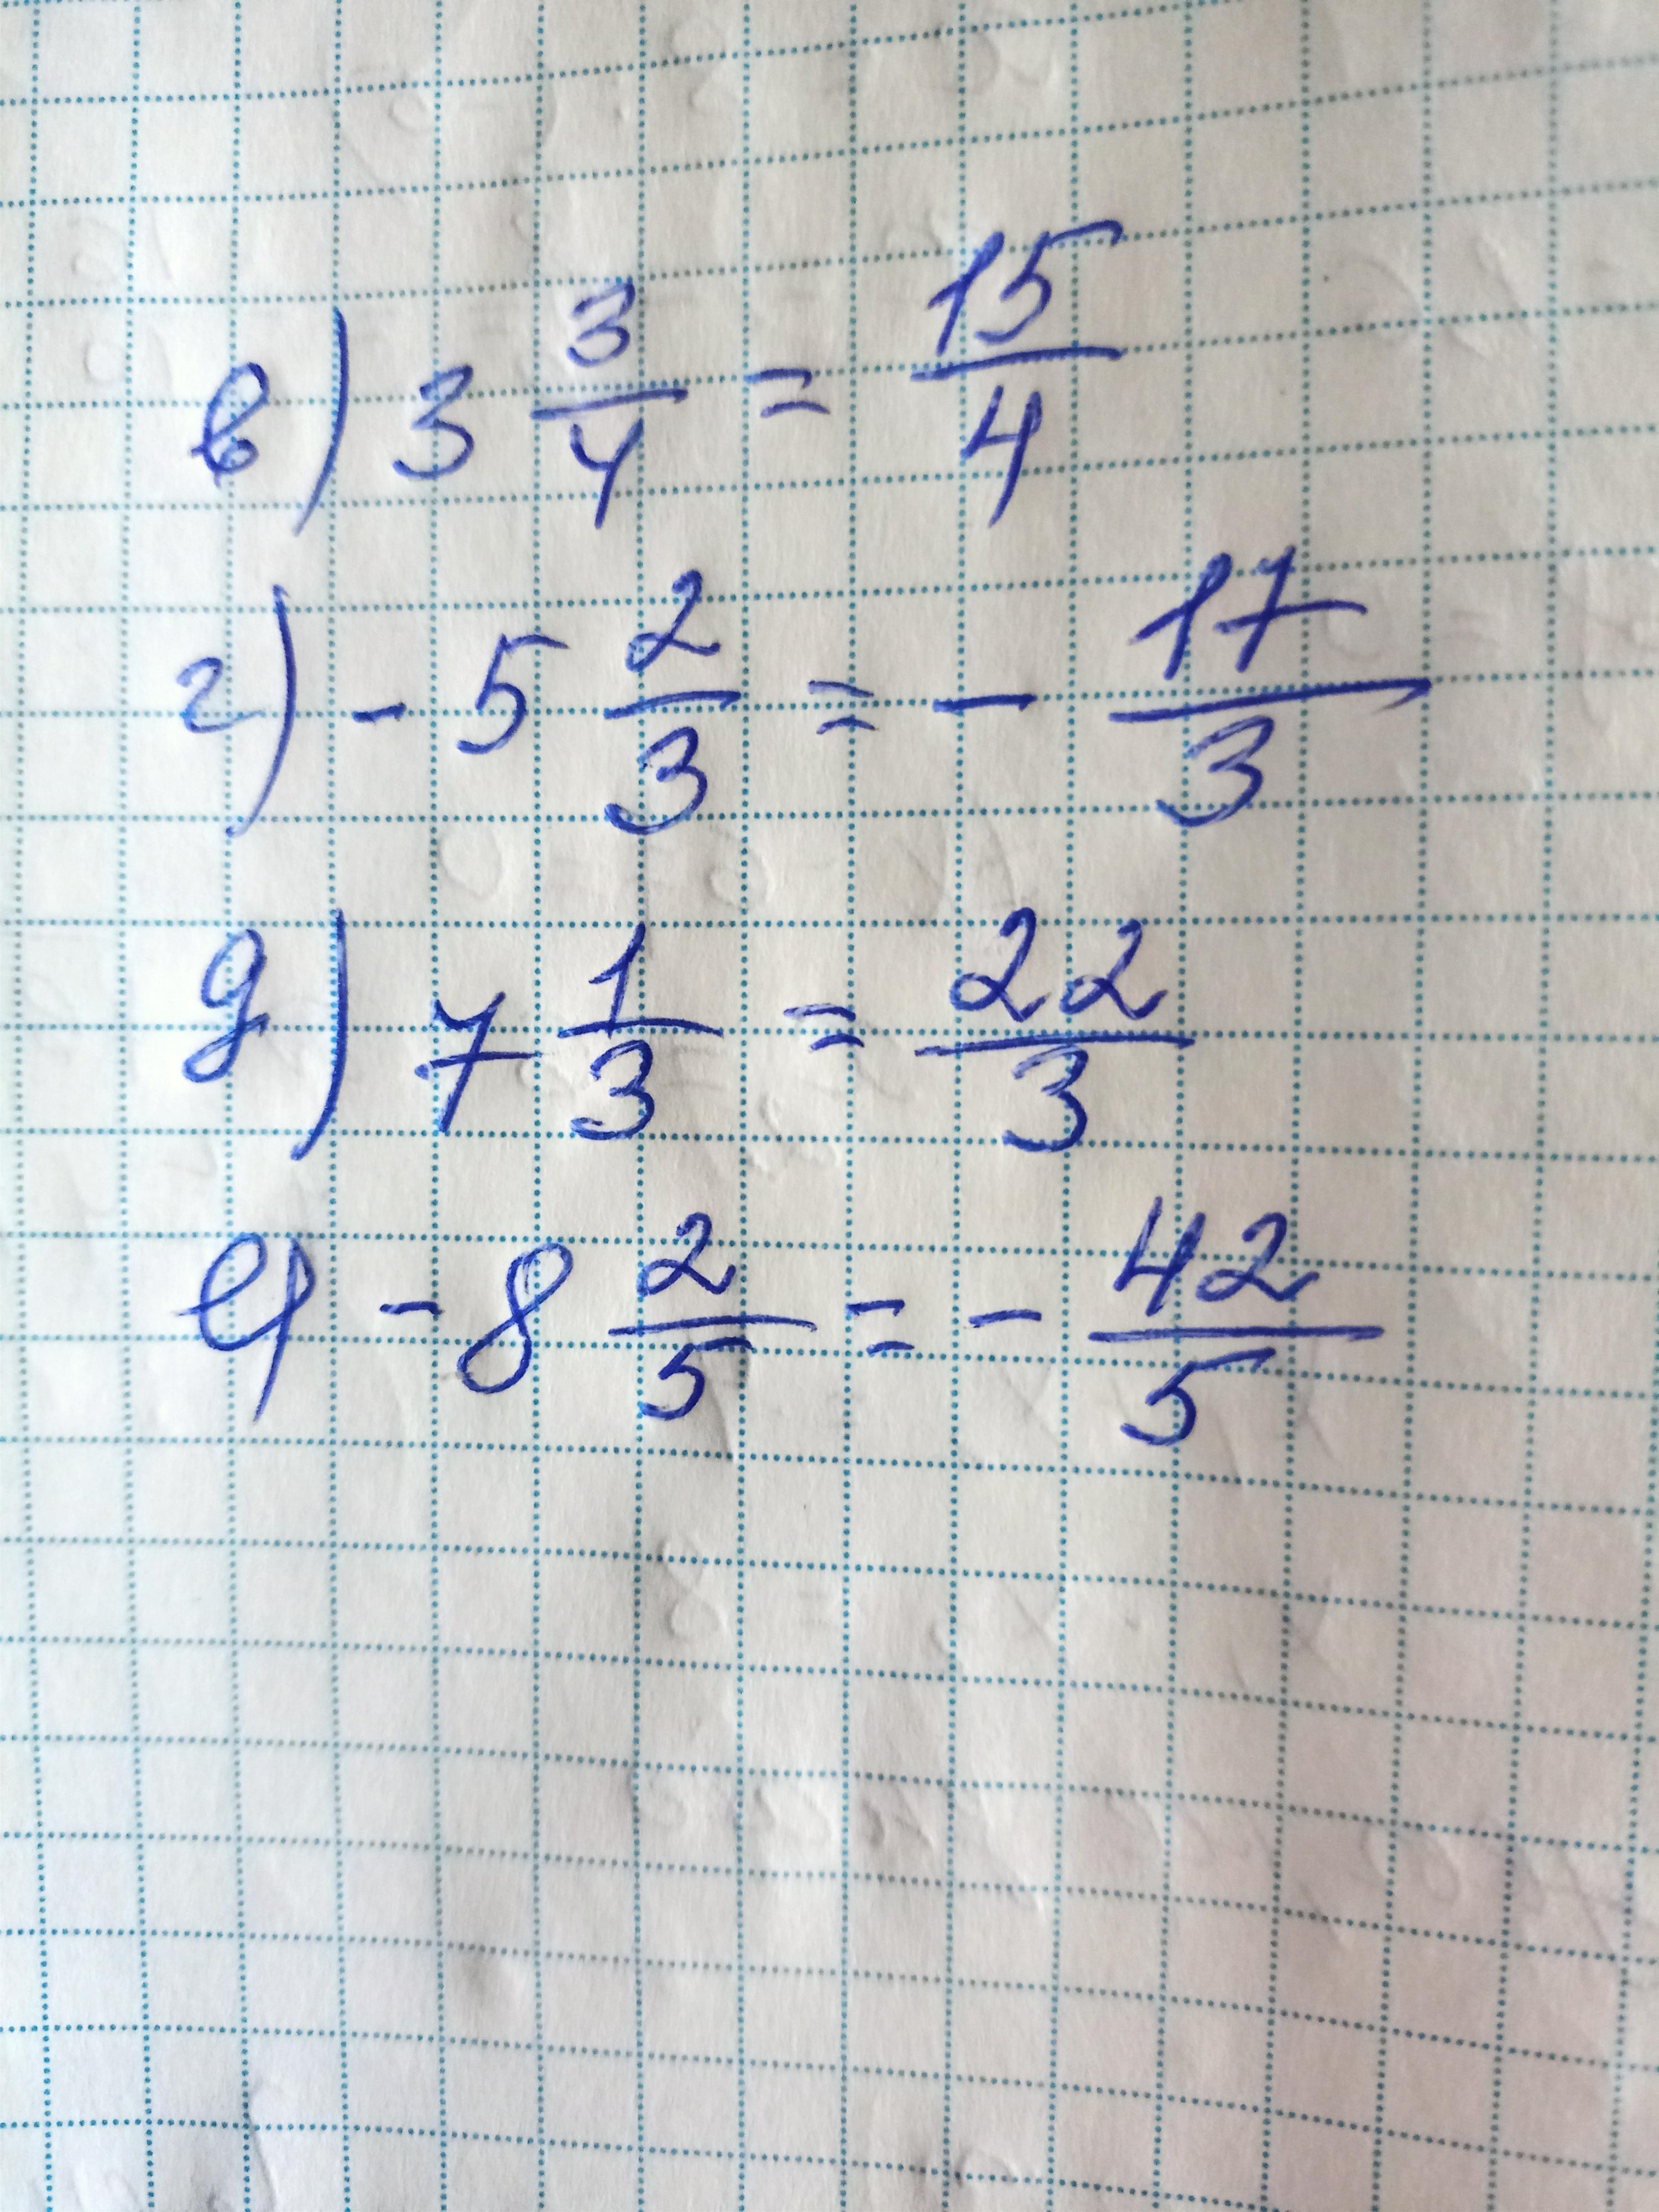 в) 3 3/4 = 15/4
г) - 5 2/3 = - 17/3
д) 7 1/3 = 22/3
е) - 8 2/5 = - 42/5